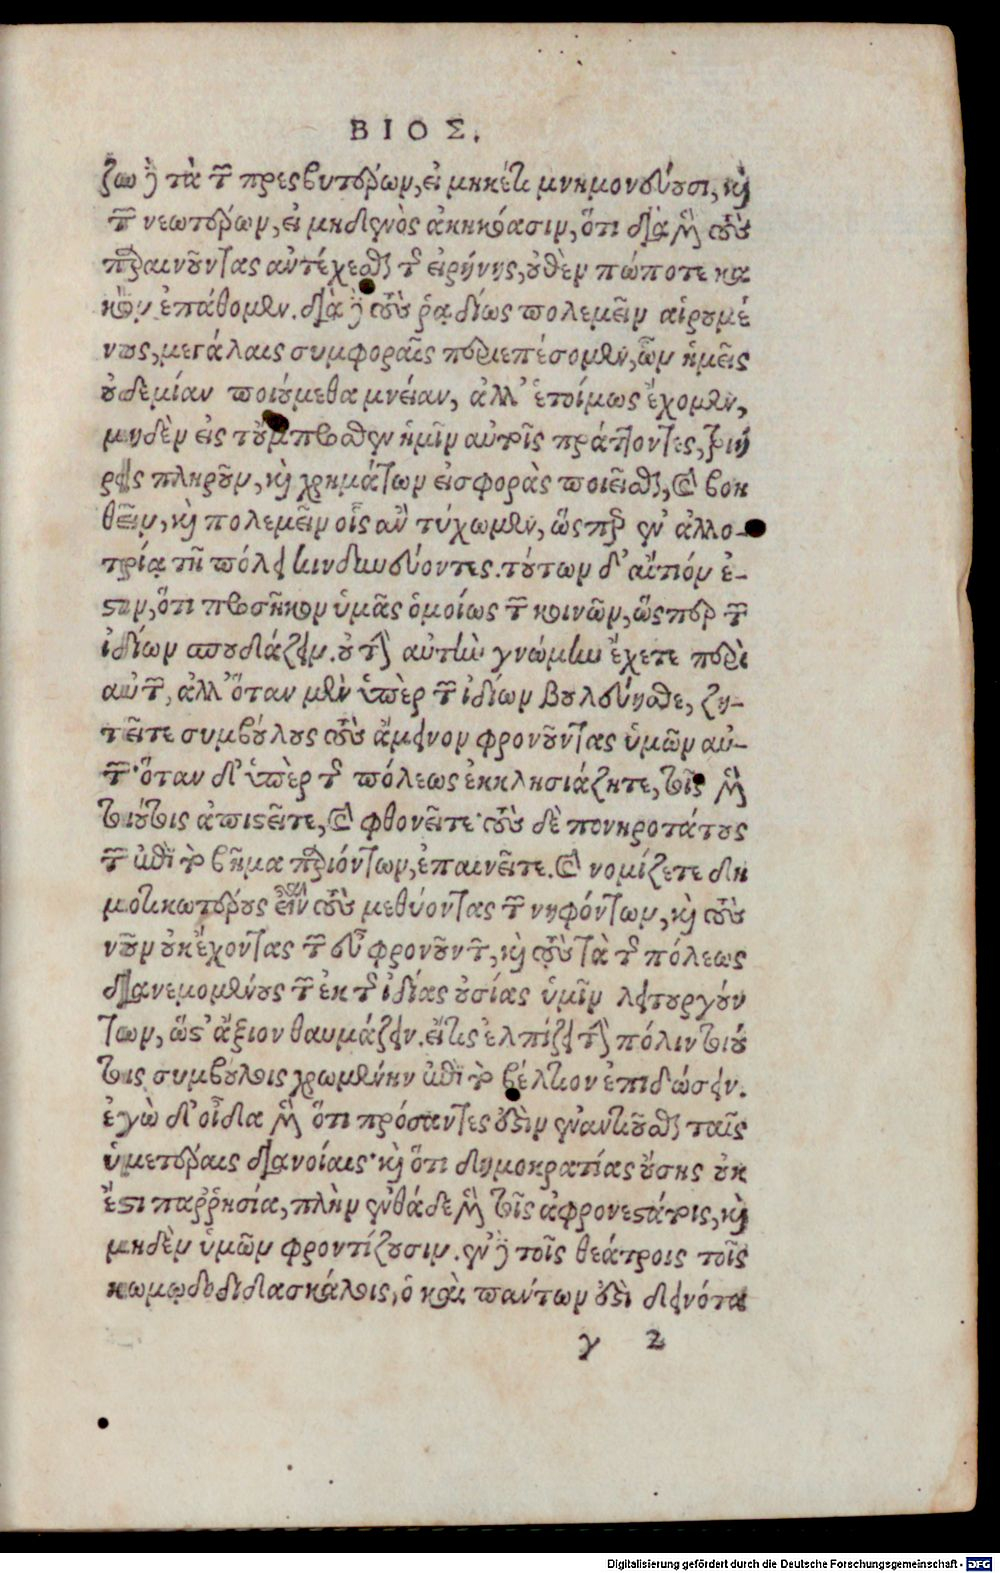 ΒΙΟΣ.
ζω δὲ τὰ τῶν πρεσβυτέρων, εἰ μηκέτι μνημονεύουσι, καὶ
τῶν νεωτέρων, εἰ μηδενὸς ἀκηκόασιν, ὅτι διὰ μὲν τοὺς
παραινοῦντας ἀντέχεσθαι τῆς εἰρήνης, οὐθὲν πώποτε κα
κὸν ἐπάθομεν. διὰ δὲ τοὺς ῥᾳδίως πολεμεῖν αἱρουμέ
νους, μεγάλαις συμφοραῖς περιεπέσομεν, ὧν ἡμεῖς
οὐδεμίαν ποιούμεθα μνείαν, ἀλλ' ἑτοίμως ἔχομεν,
μηδὲν εἰς τοὔμπροσθεν ἡμῖν αὐτοῖς πράττοντες, τριή
ρεις πληροῦν, καὶ χρημάτων εἰσφορὰς ποιεῖσθαι, καὶ βοη
θεῖν, καὶ πολεμεῖν οἷς ἂν τύχωμεν, ὥσπερ ἐν ἀλλο-
τρίᾳ τῇ πόλει κινδυνεύοντες. τούτων δ' αἴτιόν ἐ-
στιν, ὅτι προσῆκον ὑμᾶς ὁμοίως τῶν κοινῶν, ὥσπερ τῶν
ἰδίων σπουδάζειν. οὐ τὴν αὐτὴν γνώμην ἔχετε περὶ
αὐτῶν, ἀλλ' ὅταν μὲν ὑπὲρ τῶν ἰδίων βουλεύησθε, ζη-
τεῖτε συμβούλους τοὺς ἄμεινον φρονοῦντας ὑμῶν αὐ-
τῶν· ὅταν δ' ὑπὲρ τῆς πόλεως ἐκκλησιάζητε, τοῖς μὲν
τοιούτοις ἀπιστεῖτε, καὶ φθονεῖτε· τοὺς δὲ πονηροτάτους
τῶν ἐπὶ τὸ βῆμα παριόντων, ἐπαινεῖτε. καὶ νομίζετε δη
μοτικωτέρους εἶναι τοὺς μεθύοντας τῶν νηφόντων, καὶ τοὺς
νοῦν οὐκ ἔχοντας τῶν εὖ φρονούντων, καὶ τοὺς τὰ τῆς πόλεως
διανεμομένους τῶν ἐκ τῆς ἰδίας οὐσίας ὑμῖν λειτουργούν
των, ὥστ' ἄξιον θαυμάζειν. εἴ τις ἐλπίζει τὴν πόλιν τοιού
τοις συμβούλοις χρωμένην ἐπὶ τὸ βέλτιον ἐπιδώσειν.
ἐγὼ δ' οἶδα μὲν ὅτι πρόσαντες οὐδὲν ἐναντιοῦσθαι ταῖς
ὑμετέραις διανοίαις· καὶ ὅτι δημοκρατίας οὔσης οὐκ
ἔστι παῤῥησία, πλὴν ἐνθάδε μὲν τοῖς ἀφρονεστάτοις, καὶ
μηδὲν ὑμῶν φροντίζουσιν. ἐν δὲ τοῖς θεάτροις τοῖς
κωμῳδοδιδασκάλοις, ὃ καὶ πάντων οὐδὲ δεινότα
γ 2
Digitalisierung gefördert durch die Deutsche Forschungsgemeinschaft - DFG